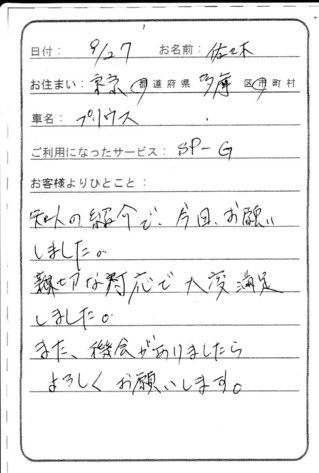 日付： 9/27 お名前： 佐々木
お住まい： 東京 都道府県 多摩 区市町村
車名： プリウス
ご利用になったサービス： SP-G
お客様よりひとこと：
知人の紹介で、今回、お願い
しました。
親切な対応で大変満足
しました。
また、機会がありましたら
よろしくお願いします。